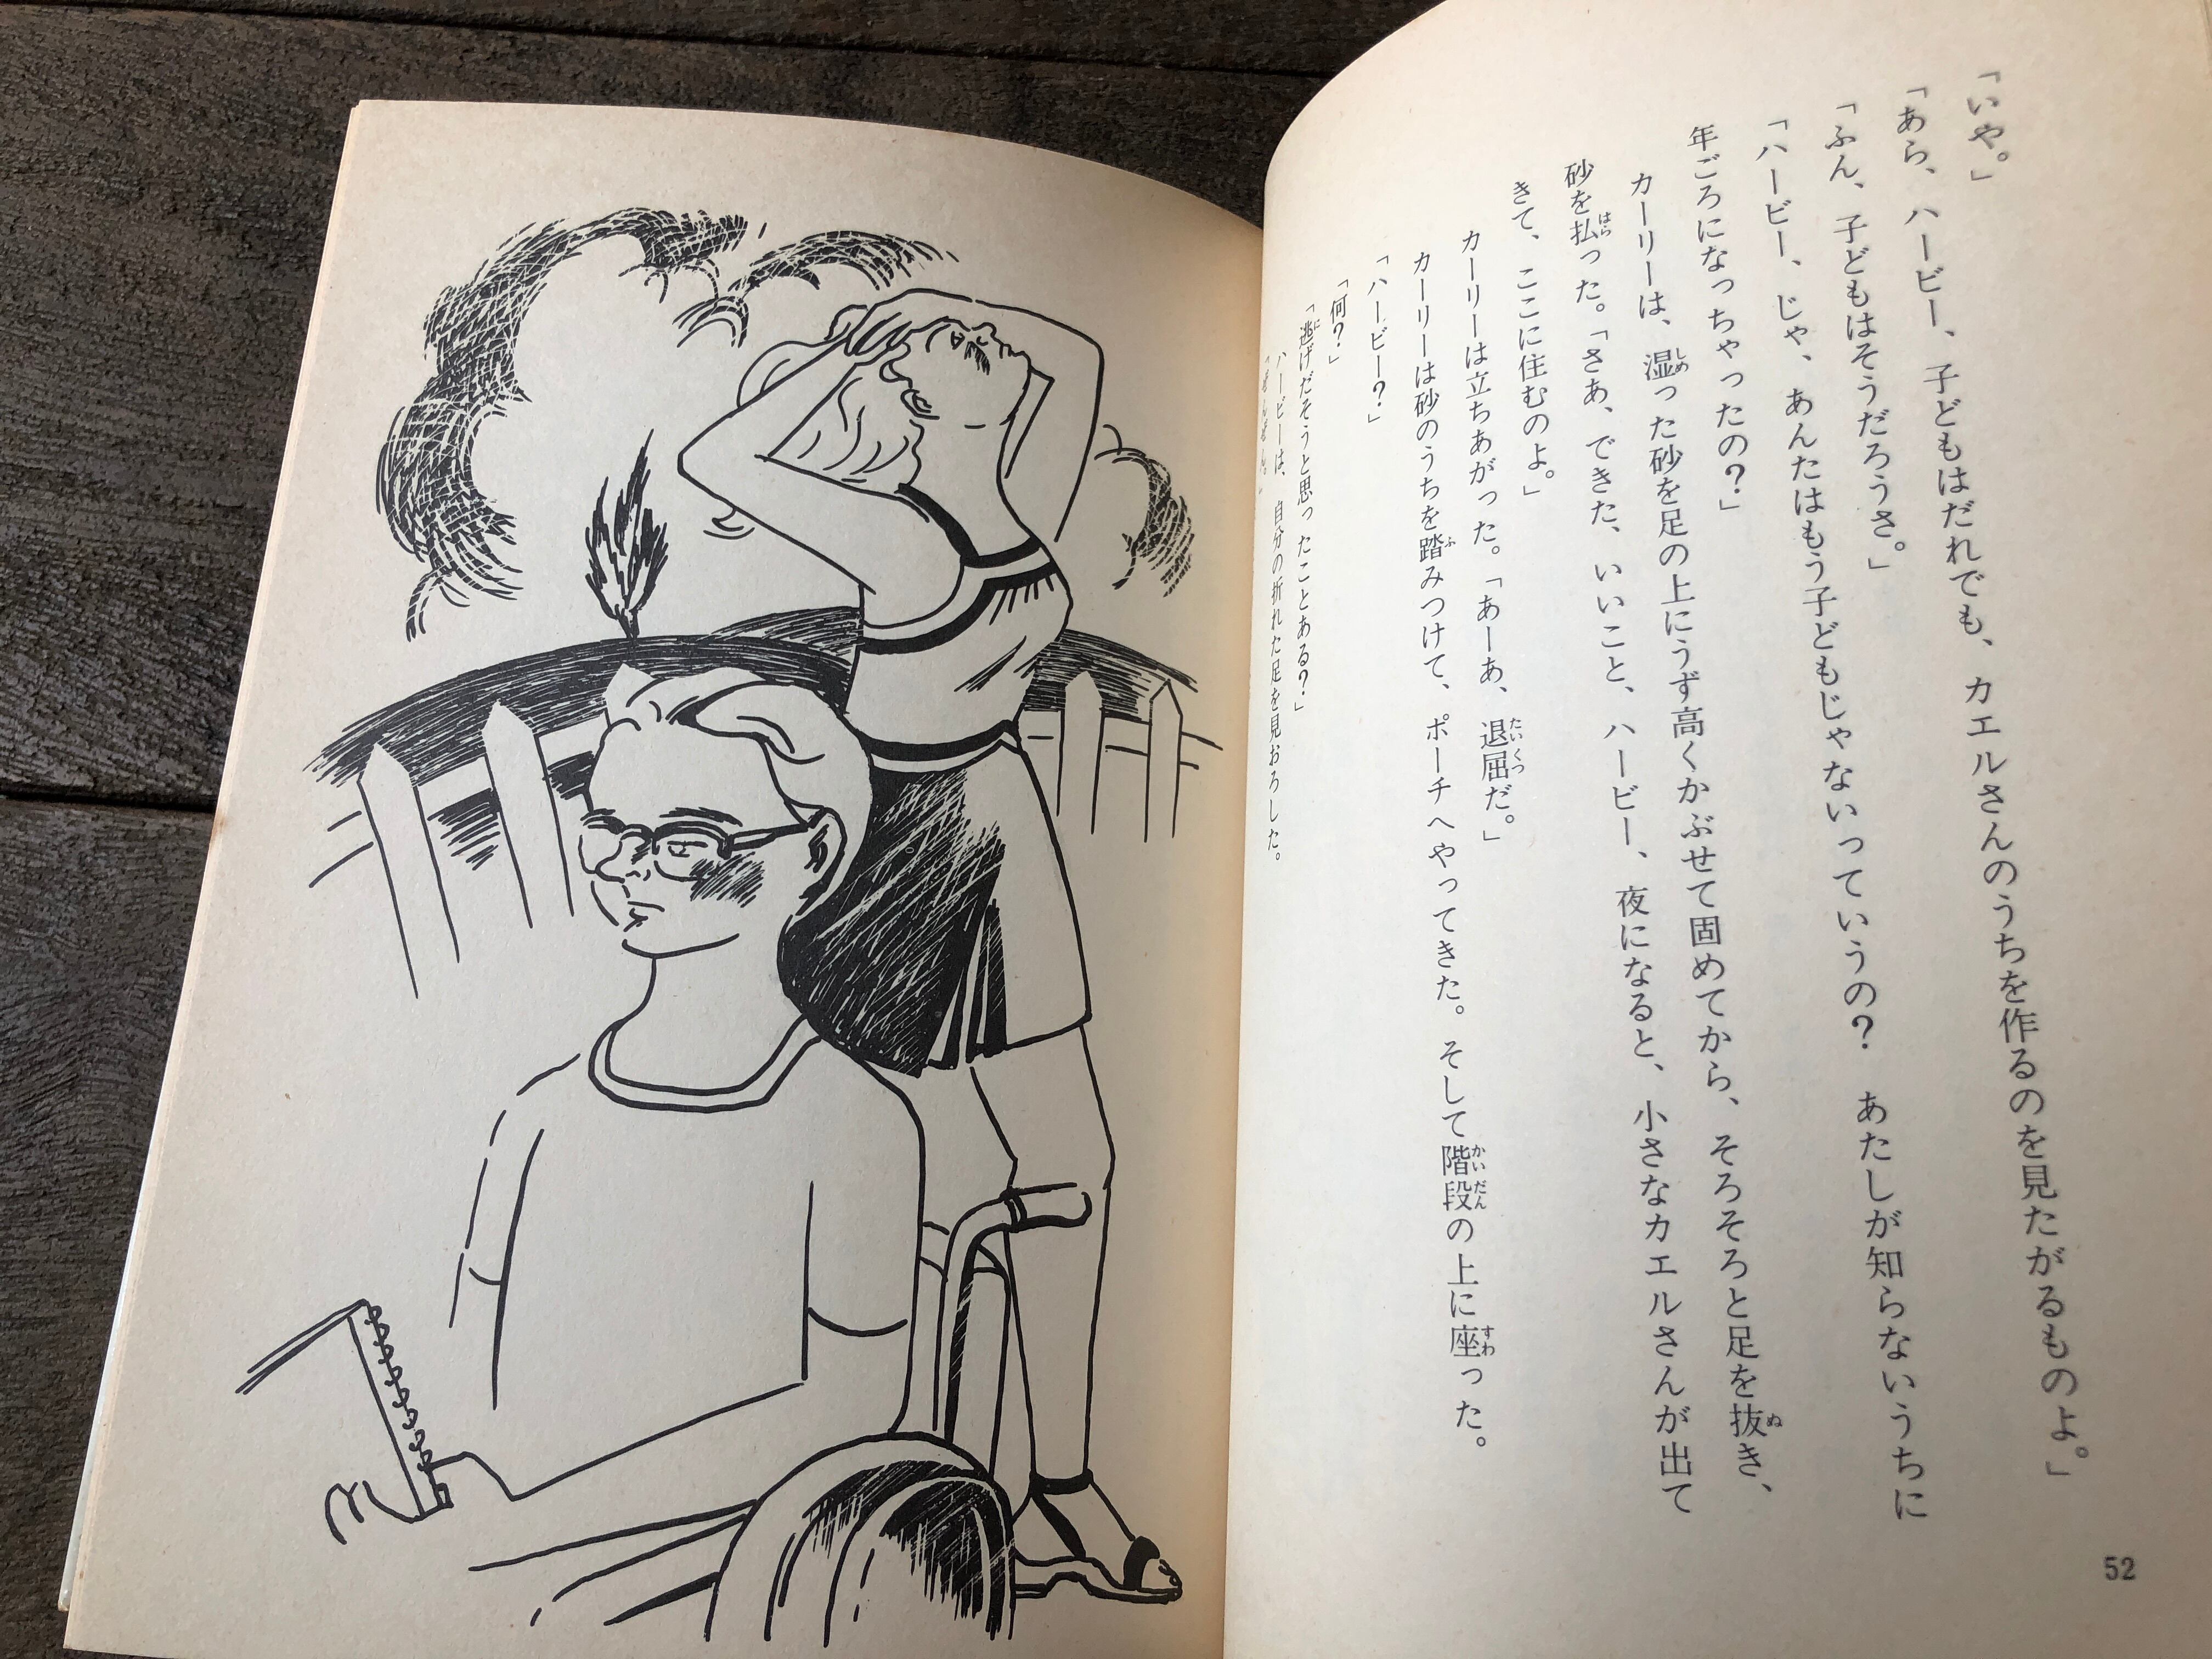 「いや。」
「あら、ハービー、子どもはだれでも、カエルさんのうちを作るのを見たがるものよ。」
「ふん、子どもはそうだろうさ。」
「ハービー、じゃ、あんたはもう子どもじゃないっていうの？　あたしが知らないうちに
年ごろになっちゃったの？」
カーリーは、湿った砂を足の上にうず高くかぶせて固めてから、そろそろと足を抜き、
砂を払った。「さあ、できた、いいこと、ハービー、夜になると、小さなカエルさんが出て
きて、ここに住むのよ。」
カーリーは立ちあがった。「あーあ、退屈だ。」
カーリーは砂のうちを踏みつけて、ポーチへやってきた。そして階段の上に座った。
「ハービー？」
「何？」
「逃げだそうと思ったことある？」
ハービーは、自分の折れた足を見おろした。
52